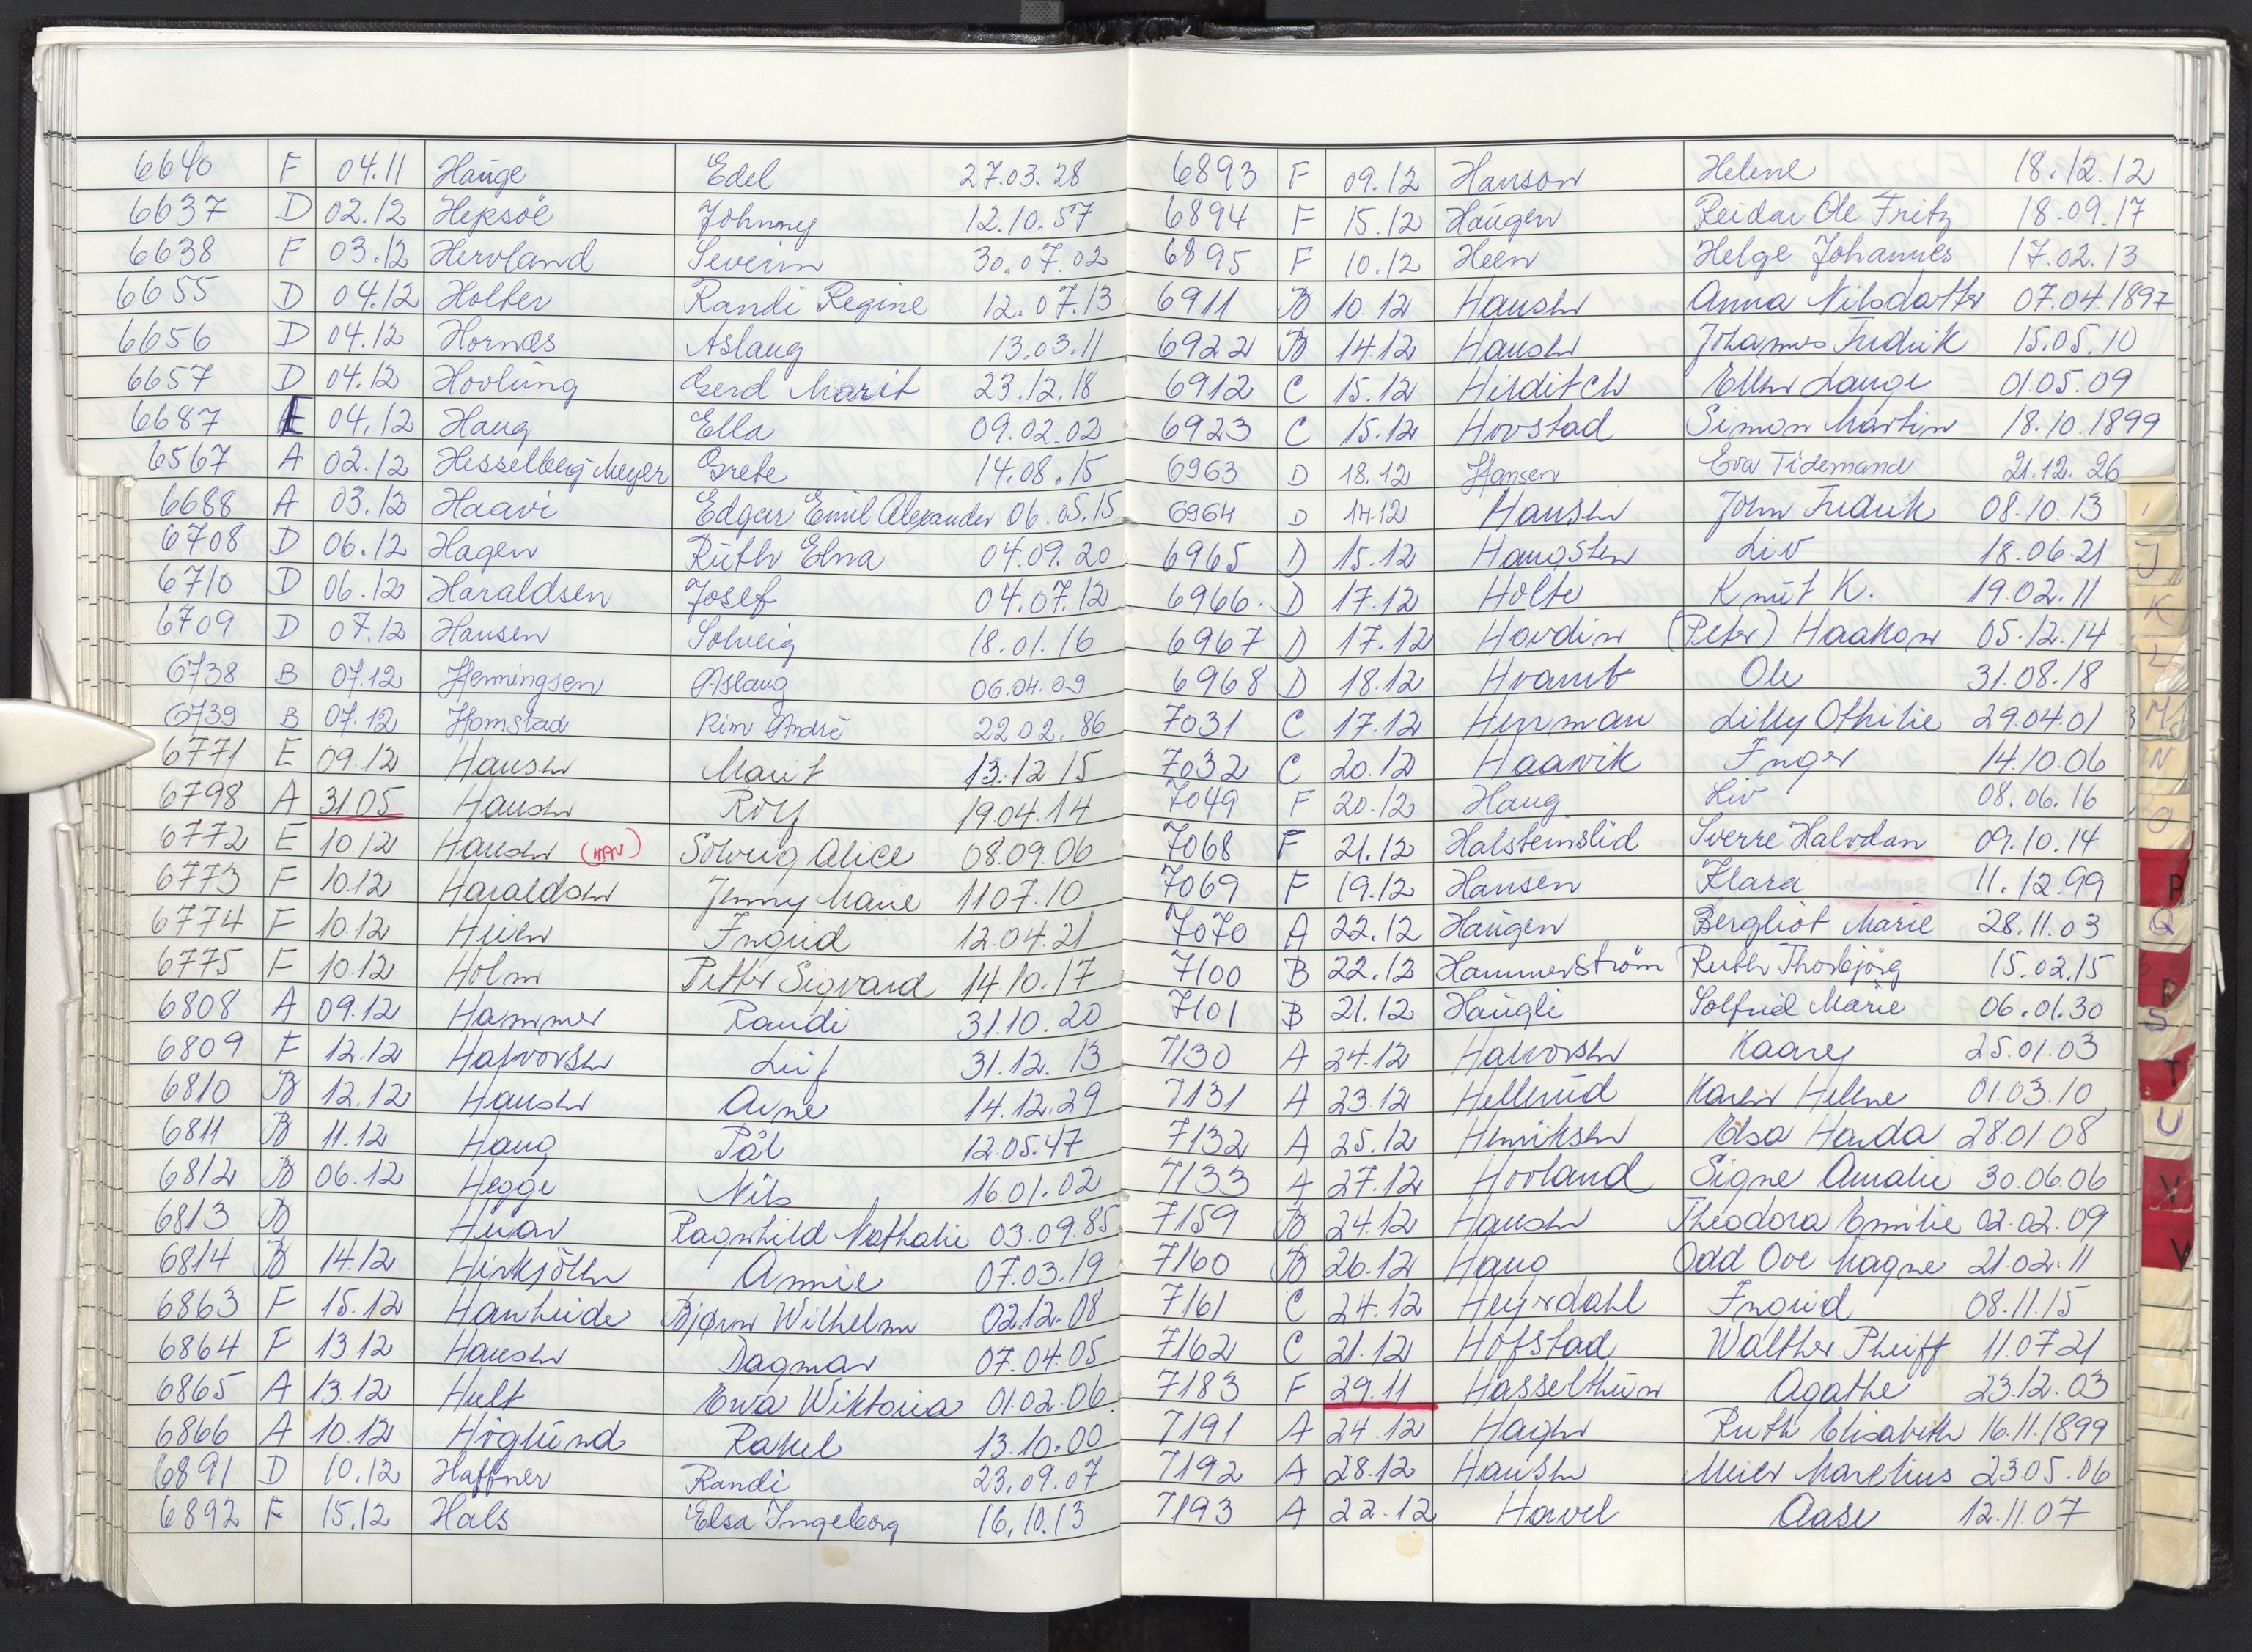 6640 F 04.11 Hauge Edel 27.03.28
6637 D 02.12 Hepsöe Johnny 12.10.57
6638 F 03.12 Hervland Severin 30.07.02
6655 D 04.12 Holter Randi Regine 12.07.13
6656 D 04.12 Hornæs Aslaug 13.03.11
6657 D 04.12 Hovlung Gerd Marit 23.12.18
6687 04.12 Haug Ella 09.02.02
6567 A 02.12 Hesselberg-Meyer Grete 14.08.15
6688 A 03.12 Haavi Edgar Emil Alexander 06.05.15
6708 D 06.12 Hagen Ruth Elna 04.09.20
6710 D 06.12 Haraldsen Josef 04.07.12
6709 D 07.12 Hansen Solveig 18.01.16
6738 B 07.12 Henningsen Aslaug 06.04.09
6739 B 07.12 Homstad Kim André 22.02.86
6771 E 09.12 Hansen Marit 13.12.15
6798 A 31.05 Hansen Rolf 19.04.14
6772 E 10.12 Hansen Solveig Alice 08.09.06
6773 F 10.12 Haraldsen Jenny Marie 11.07.10
6774 F 10.12 Ingrid 12.04.21
6775 F 10.12 Holm Petter Sigvard 14.10.17
6808 A 09.12 Hammer Randi 31.10.20
6809 F 12.12 Halvorsen Leif 31.12.13
6810 B 12.12 Hansen Arne 14.12.29
6811 B 11.12 Haug Pål 12.05.47
6812 B 06.12 Hegge Nils 16.01.02
6813 B Ragnhild Nathalie 03.09.85
6814 B 14.12 Hirkjölen Annie 07.03.19
6863 F 15.12 Hanheide Bjørn Wilhelm 02.12.08
6864 F 13.12 Hansen Dagmar 07.04.05
6865 A 13.12 Hult Ewa Wiktoria 01.02.06
6866 A 10.12 Höglund Rakel 13.10.00
6891 D 10.12 Haffner Randi 23.09.07
6892 F 15.12 Hals Elsa Ingeborg 16.10.13
6893 F 09.12 Hanson Helene 18.12.12
6894 F 15.12 Haugen Reidar Ole Fritz 18.09.17
6895 F 10.12 Heen Helge Johannes 17.02.13
6911 B 10.12 Hansen Anna Nilsdatter 07.04.1897
6922 B 14.12 Hansen Johannes Fredrik 15.05.10
6912 C 15.12 Hilditch Ellen Lange 01.05.09
6923 C 15.12 Hovstad Simon Martin 18.10.1899
6963 D 18.12 Hansen Eva Tidemand 21.12.26
6964 D 14.12 Hansen John Fredrik 08.10.13
6965 D 15.12 Haugsten Liv 18.06.21
6966. D 17.12 Holte Knut K. 19.02.11
6967 D 17.12 Hovdin (Peter) Haakon 05.12.14
6968 D 18.12 Hvamb Ole 31.08.18
7031 C 17.12 Herman Lilly Othilie 29.04.01
7032 C 20.12 Haavik Inger 14.10.06
7049 F 20.12 Haug Liv 08.06.16
7068 F 21.12 Halsteinslid Sverre Halvdan 09.10.14
7069 F 19.12 Hansen Klara 11.12.99
7070 A 22.12 Haugen Bergliot Marie 28.11.03
7100 B 22.12 Hammerström Ruth Thorbjörg 15.02.15
7101 B 21.12 Haugli Solfrid Marie 06.01.30
7130 A 24.12 Halvorsen Kaare 25.01.03
7131 A 23.12 Hellerud Karen Helene 01.03.10
7132 A 25.12 Henriksen Elsa Harda 28.01.08
7133 A 27.12 Hovland Signe Amalie 30.06.06
7159 B 24.12 Hansen Theodora Emilie 02.02.09
7160 B 26.12 Haug Odd Ove Magne 21.02.11
7161 C 24.12 Heyerdahl Ingrid 08.11.15
7162 C 21.12 Hofstad Walther Pheiff 11.07.21
7183 F 29.11 Hasselthun Agathe 23.12.03
7191 A 24.12 Hagen Ruth Elisabeth 16.11.1899
7192 A 28.12 Hansen Meier Marelius 23.05.06
7193 A 22.12 Havel Aase 12.11.07
J
K
L
M
N
O
P
Q
R
S
T
U
V